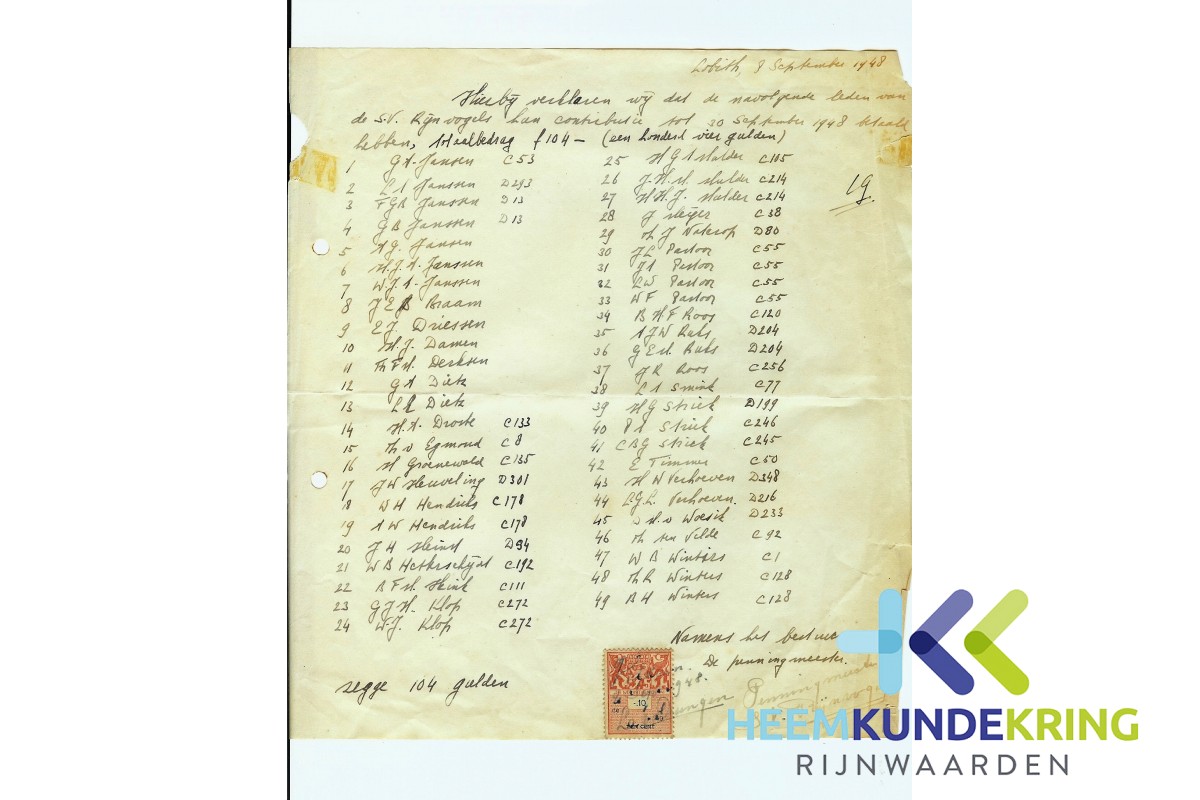 Lobith, 8 September 1948
Hierbij verklaren wij dat de navolgende leden van
de S.V. Rijnvogels hun contributie tot 30 September 1948 betaald
hebben, totaalbedrag f 104 — (een honderd vier gulden)
1 G A Jansen C 53
2 L A Janssen D 293
3 F G B Janssen D 13
4 G B Janssen D 13
5 A G. Jansen
6 H. J. A. Janssen
7 W. J. A. Janssen
8 J E B Braam
9 E J. Driessen
10 H. J. Damen
11 Th F H. Derksen
12 G A Dietz
13 L R Dietz
14 H. A. Droste C 133
15 Th v Egmond C 8
16 H Groenewold C 135
17 J W Heuveling D 301
18 W H Hendriks C 178
19 A W Hendriks C 178
20 J H Heinst D 94
21 W B Hetterscheijdt C 192
22 B F H. Henk C 111
23 G J H. Klop C 272
24 W. J. Klop C 272
25 H G A Mulder C 105
26 J. H. H. Mulder C 214
27 H H. J. Mulder C 214
28 J Meijer C 38
29 Th J Naterop D 80
30 J L Pastoor C 55
31 J A Pastoor C 55
32 L W Pastoor C 55
33 W F Pastoor C 55
34 B H F Roos C 120
35 A J W Raks D 204
36 G E H. Raks D 204
37 J R Roos C 256
38 L A Smink C 77
39 H G Striek D 199
40 P A Striek C 246
41 C B G Striek C 245
42 E Timmer C 50
43 H W Verhoeven D 348
44 L G L. Verhoeven. D 216
45 D H. v Woesik D 233
46 Th ten Velde C 92
47 W B Winters C 1
48 Th R Winters C 128
49 B H Winters C 128
19.
Namens het bestuur
De penningmeester.
zegge 104 gulden
10
HEEMKUNDEKRING
RIJNWAARDEN